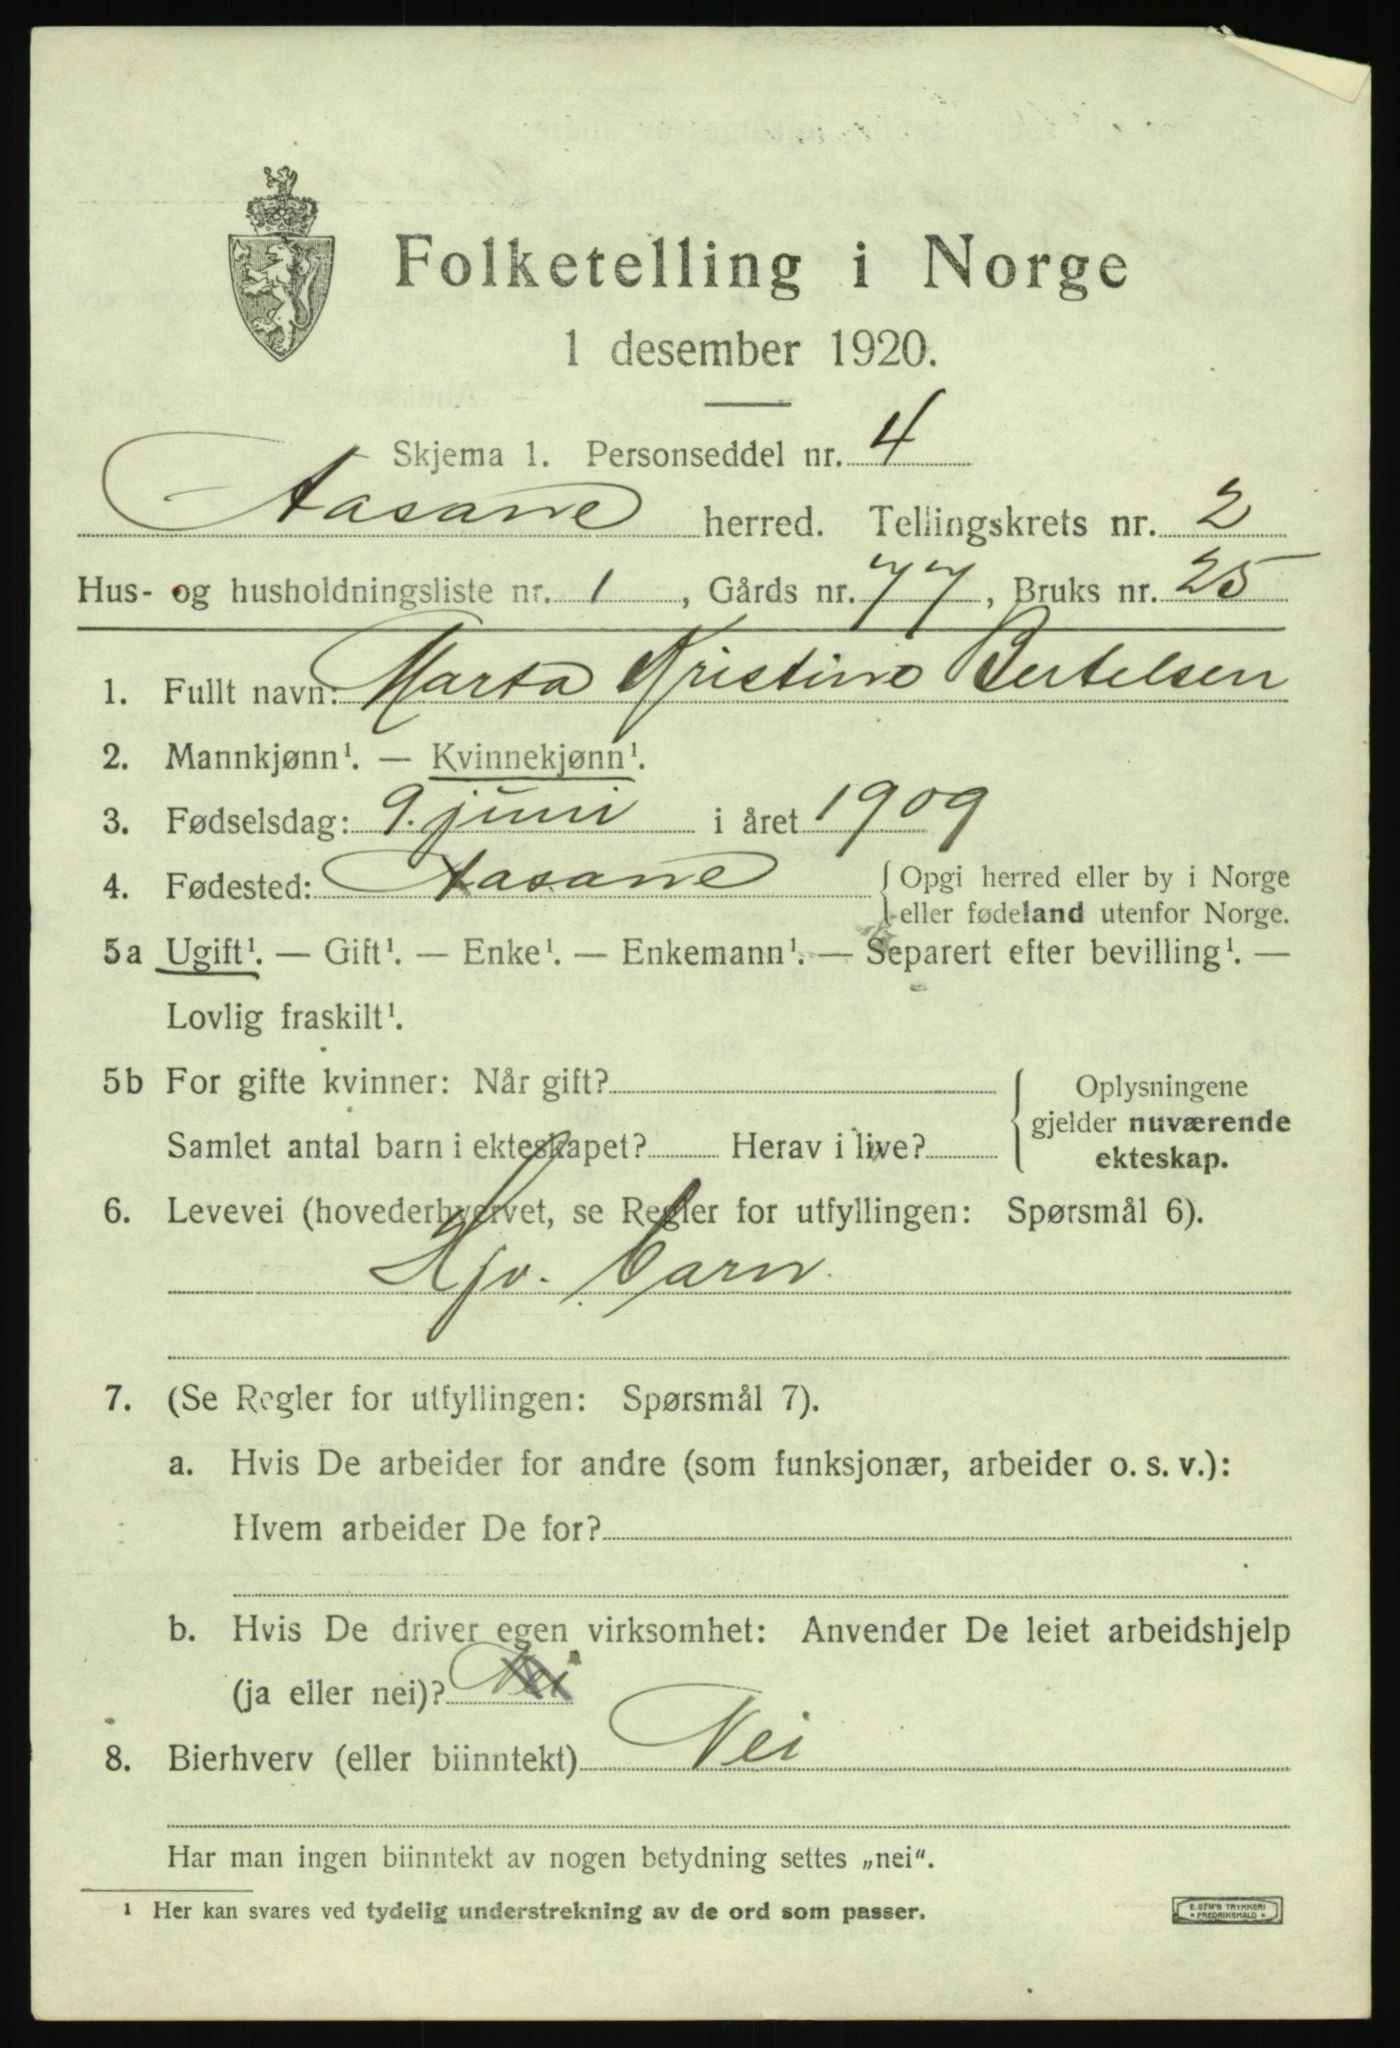 Folketelling i Norge
1 desember 1920.
Skjema 1. Personseddel nr. 4
Aasane herred. Tellingskrets nr. 2
Hus- og husholdningsliste nr. 1, Gårds nr. 77, Bruks nr. 25
1. Fullt navn: Marta Kristine Bertelsen
2. Mannkjønn¹. — Kvinnekjønn¹.
3. Fødselsdag: 9. juni i året 1909
4. Fødested: Aasane { Opgi herred eller by i Norge
eller fødeland utenfor Norge.
5a Ugift¹. — Gift¹. — Enke¹. — Enkemann¹. — Separert efter bevilling¹. —
Lovlig fraskilt¹.
5b For gifte kvinner: Når gift?
Samlet antal barn i ekteskapet? Herav i live?
{ Oplysningene
gjelder nuværende
ekteskap.
6. Levevei (hovederhvervet, se Regler for utfyllingen: Spørsmål 6).
Hjv. barn.
7. (Se Regler for utfyllingen: Spørsmål 7).
a. Hvis De arbeider for andre (som funksjonær, arbeider o. s. v.):
Hvem arbeider De for?
b. Hvis De driver egen virksomhet: Anvender De leiet arbeidshjelp
(ja eller nei)? Nei
8. Bierhverv (eller biinntekt) Nei
Har man ingen biinntekt av nogen betydning settes „nei“.
¹ Her kan svares ved tydelig understrekning av de ord som passer.
E. SEM'S TRYKKERI
* FREDRIKSHALD *